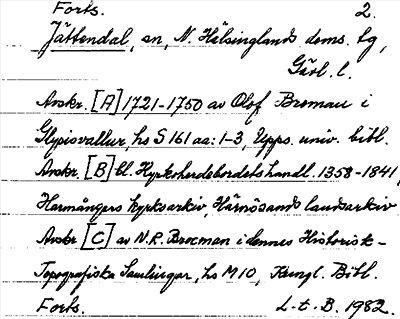 Forts. 2.
Jättendal, sn, N. Hälsinglands doms. tg,
Gävl. l.
Avskr. [A] 1721-1750 av Olof Broman i
Glysisvallur, hs S 161 aa: 1-3, Upps. univ. bibl.
Avskr. [B] bl. Kyrkoherdebordets handl. 1358-1841,
Harmångers kyrkoarkiv, Härnösands landsarkiv
Avskr [C] av N.R. Brocman i dennes Historisk-
Topografiska Samlingar, hs M 10, Kungl. Bibl.
Forts. L-t. B. 1982.